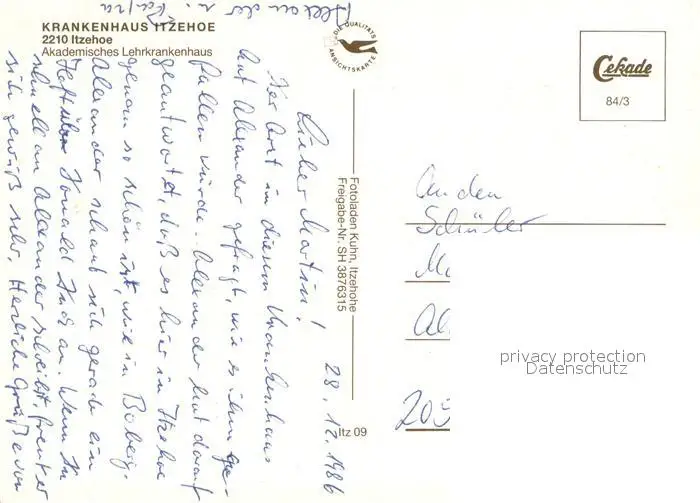 KRANKENHAUS ITZEHOE
2210 Itzehoe
Akademisches Lehrkrankenhaus
DIE QUALITÄTS
ANSICHTSKARTE
Cekade
84/3
Fotoladen Kuhn, Itzehohe
Freigabe-Nr. SH 3876315
Itz 09
28.12.1986
Lieber Martin!
Der Arzt in diesem Krankenhaus
hat Alexander gefragt, wie es ihm ge-
fallen würde. Alexander hat darauf
geantwortet, daß es hier in Itzehoe
genau so schön ist, wie in Boberg.
Alexander schaut sich gerade ein
Heft über Donald Duck an. Wenn Du
schnell an Alexander schreibst, freut er
sich gewiß sehr. Herzliche Grüße von
Alexander
An den
Schüler
M
Al
205
privacy protection
Datenschutz